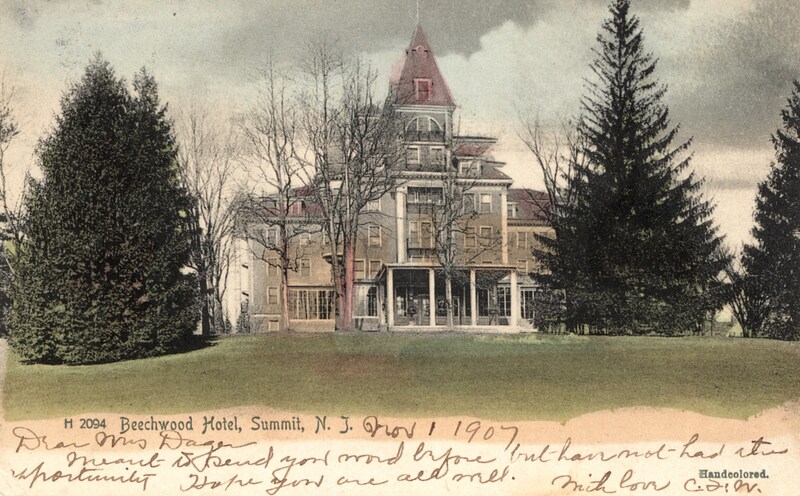 H 2094 Beechwood Hotel, Summit, N. J. Nov 1 1907
Dear Mrs Dager
Meant to send you word before but have not had the
opportunity Hope you are all well. With love C.S.W.
Handcolored.